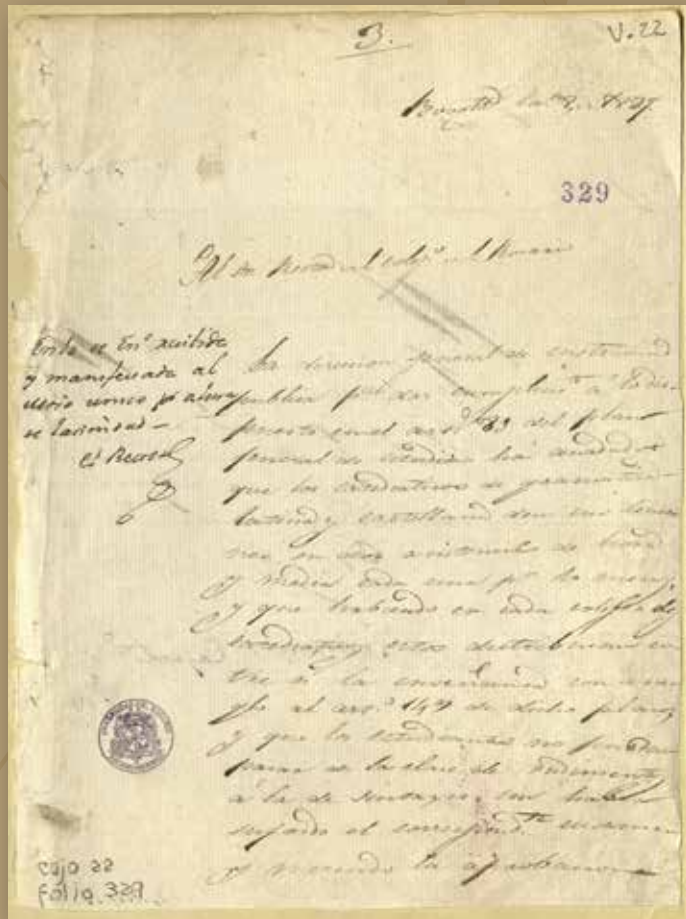 3.
V. 22
329
Al Sr Rector del colegº del Rosario
Enlo de Enº recibida
y manifestada al
unico pr ahora
de latinidad –
el Rector
La direccion general de instruccion
publica pª dar cumplimtº a lo dis-
puesto en el artº 33 del plan
general de estudios ha acordado
que los catedraticos de gramatica
latina y castellana den sus leccio
nes en dos asistencias de hora
y media cada una pr lo menos,
y que habiendo en cada colegio dos
catedraticos, estos distribuiran en
tre si la enseñanza con arre
glo al artº 149 de dicho plan,
y que los estudiantes no puedan
pasar de la clase de rudimentos
á la de sintaxis, sin haber
sufrido el correspondte examen
y merecido la aprobacion
Caja 22
folio 329